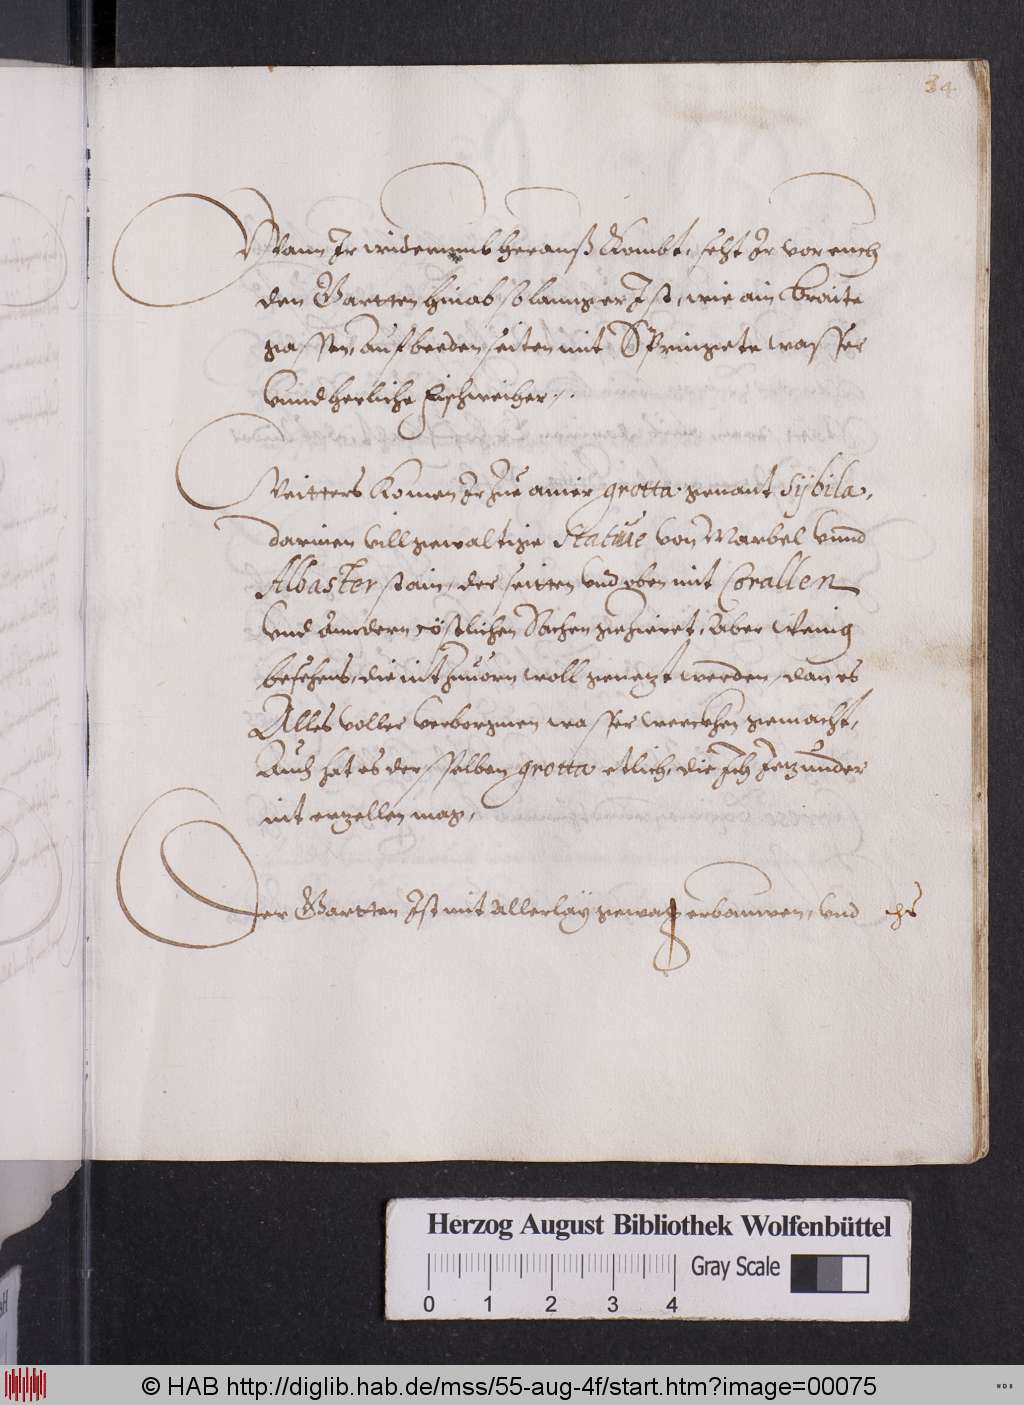 34
Wann Ir widerumb herauß Kombt, seht Ir vor euch
den Gartten hinab so lanng er Ist, wie ain braite
gassen, auf beeden seiten mit Springete wasser
vnnd herliche Fischweiher.
Weitters Komen Ir zue ainer grotta genant Sÿbila,
darinen vill gewaltige Statue von Marbel vnnd
Albaster stain, der seitten vnd oben mit Corallen
vnd anndern cöstlichen Sachen gezieret, Aber Wenig
besehens, die nit zuuorn woll genezt werden, dan es
Alles voller verborgnen wasser werckhen gemacht,
Auch hat es der sselben grotta etlich, die Ich Iezunder
nit erzellen mag,
Der Gartten Ist mit Allerlaÿ gewax erbauwen, vnd
Herzog August Bibliothek Wolfenbüttel
Gray Scale
0 1 2 3 4
© HAB http://diglib.hab.de/mss/55-aug-4f/start.htm?image=00075